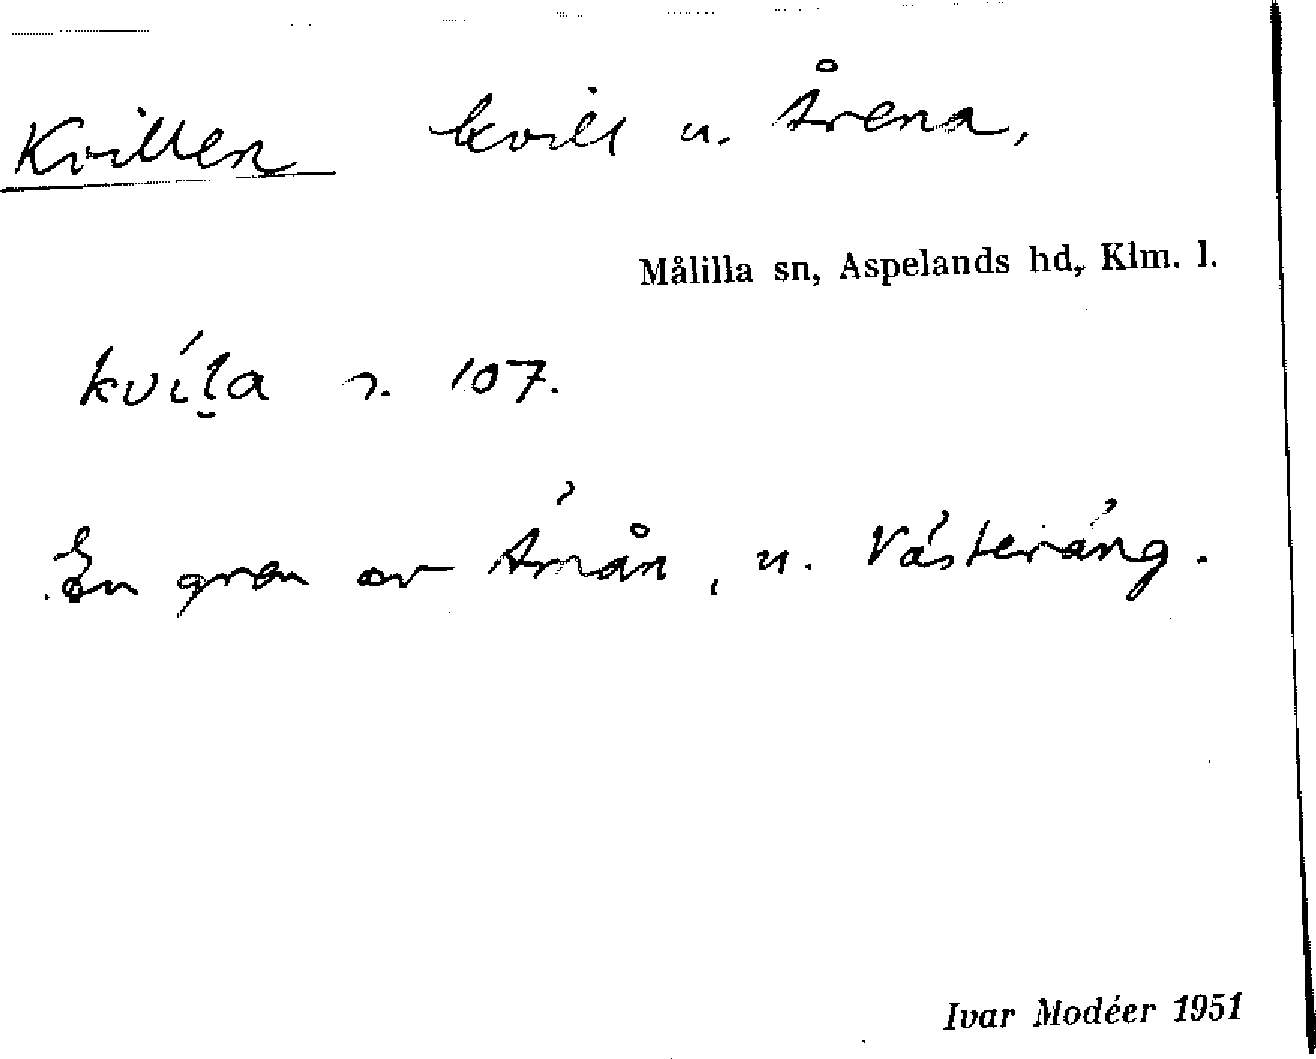 Kvillen kvill u. Årena,
Målilla sn, Aspelands hd, Klm. l.
kvíl̯a s. 107.
En gren av Åmån, u. Västeräng.
Ivar Modéer 1951